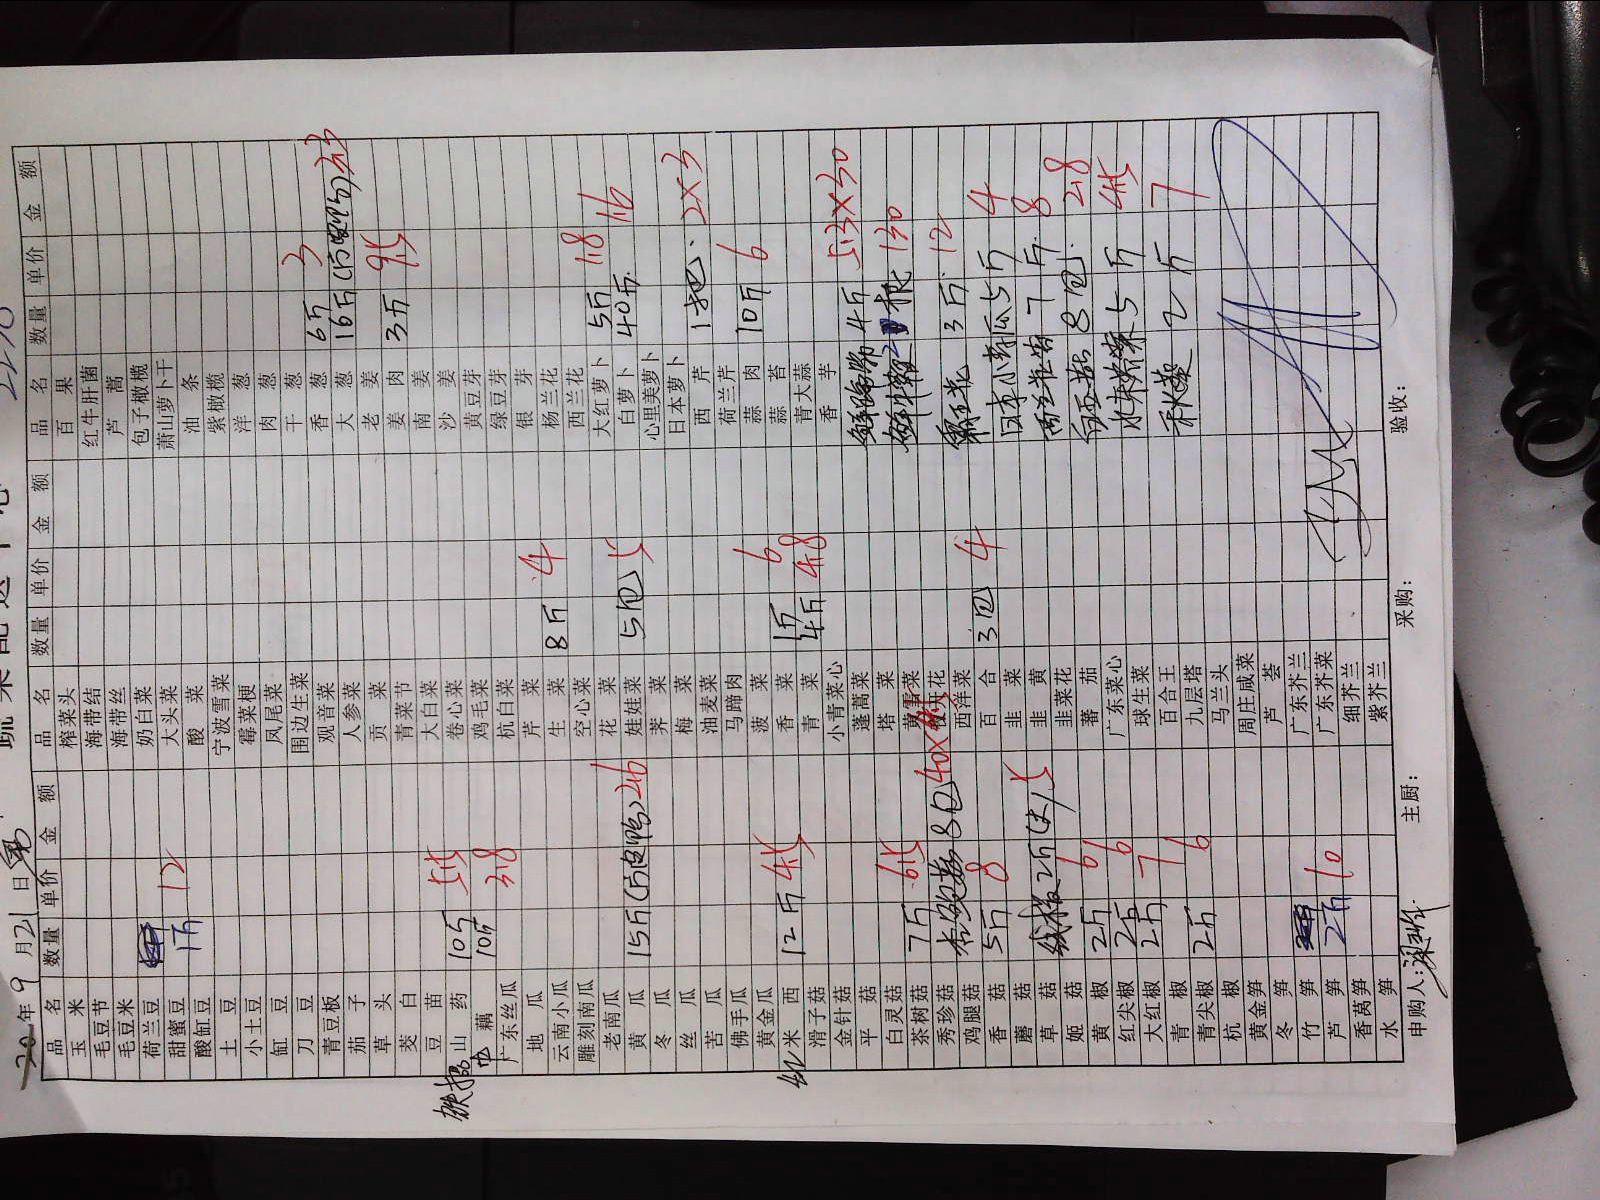 蔬菜配送中心
9月21日
品名 数量 单价 金额 品名 数量 单价 金额 品名 数量 单价 金额
玉米 榨菜头 百果
毛豆节 海带结 红牛肝菌
毛豆米 海带丝 芦蒿
荷兰豆 奶白菜 包子橄榄
甜蜜豆 1斤 12 大头菜 萧山萝卜干
酸缸豆 酸菜 油条
土豆 宁波雪菜 紫橄榄
小土豆 霉菜梗 洋葱
缸豆 凤尾菜 肉葱
刀豆 围边生菜 干葱
青豆板 观音菜 香葱 6斤 3
茄子 人参菜 大葱 16斤 3.5
草头 贡菜 老姜
茭白 青菜节 姜肉 3斤 9.5
豆苗 大白菜 南姜
铁棍山药 10斤 5.5 卷心菜 沙姜
藕 10斤 3.8 鸡毛菜 黄豆芽
广东丝瓜 杭白菜 绿豆芽
地瓜 芹菜 银芽
云南小瓜 生菜 8斤 4 杨兰花
雕刻南瓜 空心菜 西兰花
老南瓜 花菜 大红萝卜 5斤 1.8
黄瓜 15斤 2.6 娃娃菜 5包 5 白萝卜 40斤 1.6
冬瓜 荠菜 心里美萝卜
丝瓜 梅菜 日本萝卜
苦瓜 油麦菜 西芹 1把 2X3
佛手瓜 马蹄肉 荷兰芹
黄金瓜 菠菜 蒜肉 10斤 6
米西 12斤 4.5 香菜 1斤 6 蒜苔
滑子菇 青菜 4斤 4.8 青大蒜
金针菇 小青菜心 香芋
平菇 蓬蒿菜 4斤 53X30
白灵菇 塔菜 2根 130
茶树菇 7斤 6.5
秀珍菇 杏鲍菇 8包 3斤 12
鸡腿菇 西洋菜
香菇 5斤 8 百合 3包 4 日本小青瓜 5斤 4
蘑菇 韭菜 西兰苔 7斤 8
草菇 线椒 2斤 5 韭黄 8包 2.8
姬菇 韭菜花 5斤 4.5
黄椒 2斤 6 蕃茄 秋葵 2斤 7
红尖椒 2斤 6 广东菜心
大红椒 2斤 7 球生菜
青椒 百合王
青尖椒 2斤 6 九层塔
杭椒 马兰头
黄金笋 周庄咸菜
冬笋 芦荟
竹笋 广东芥兰
芦笋 2斤 10 广东芥菜
香莴笋 细芥兰
水笋 紫芥兰
申购人: 主厨: 采购: 验收: